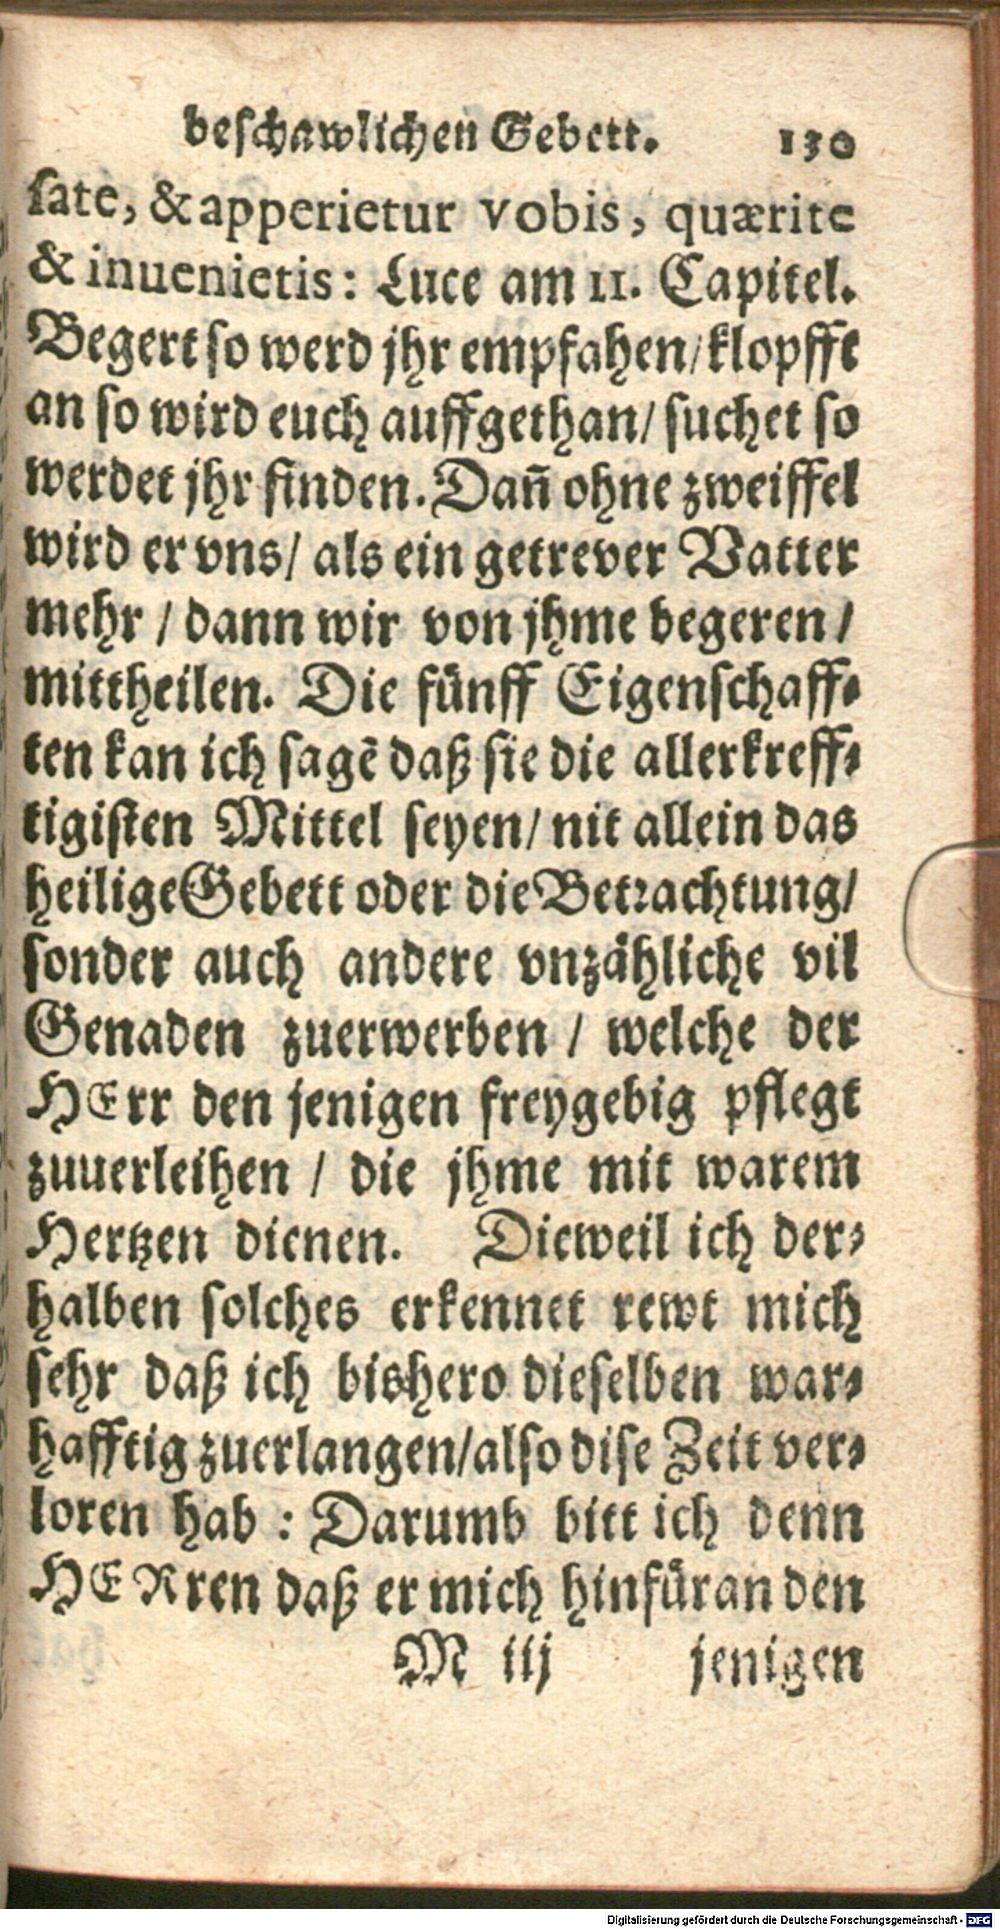 beschawlichen Gebett. 130
sate, & apperietur vobis, quærite
& inuenietis: Luce am 11. Capitel.
Begert so werd jhr empfahen/ klopfft
an so wird euch auffgethan/ suchet so
werdet jhr finden. Dañ ohne zweiffel
wird er vns/ als ein getrever Vatter
mehr / dann wir von jhme begeren /
mittheilen. Die fünff Eigenschaff-
ten kan ich sagẽ daß sie die allerkreff-
tigisten Mittel seyen/ nit allein das
heilige Gebett oder die Betrachtung/
sonder auch andere vnzähliche vil
Genaden zuerwerben / welche der
HErr den jenigen freygebig pflegt
zuuerleihen / die jhme mit warem
Hertzen dienen. Dieweil ich der-
halben solches erkennet rewt mich
sehr daß ich bishero dieselben war-
hafftig zuerlangen/ also dise Zeit ver-
loren hab : Darumb bitt ich denn
HERren daß er mich hinfüran den
M iij jenigen
Digitalisierung gefördert durch die Deutsche Forschungsgemeinschaft - DFG